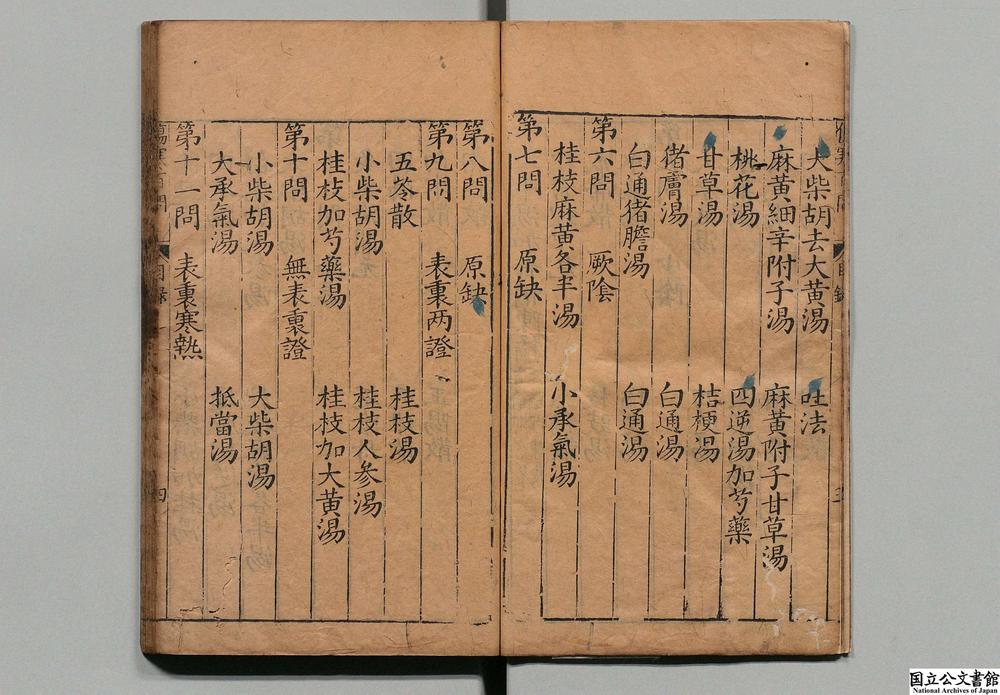 大柴胡去大黃湯　吐法
麻黃細辛附子湯　麻黃附子甘草湯
桃花湯　四逆湯加芍藥
甘草湯　桔梗湯
猪膚湯　白通湯
白通猪膽湯　白通湯
第六問　厥陰
桂枝麻黃各半湯　小承氣湯
第七問　原缺
第八問　原缺
第九問　表裏两證
五苓散　桂枝湯
小柴胡湯　桂枝人參湯
桂枝加芍藥湯　桂枝加大黃湯
第十問　無表裏證
小柴胡湯　大柴胡湯
大承氣湯　抵當湯
第十一問　表裏寒熱
目錄　四
国立公文書館
National Archives of Japan